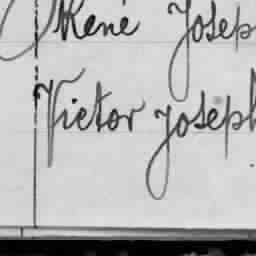 René Josep
Victor Joseph